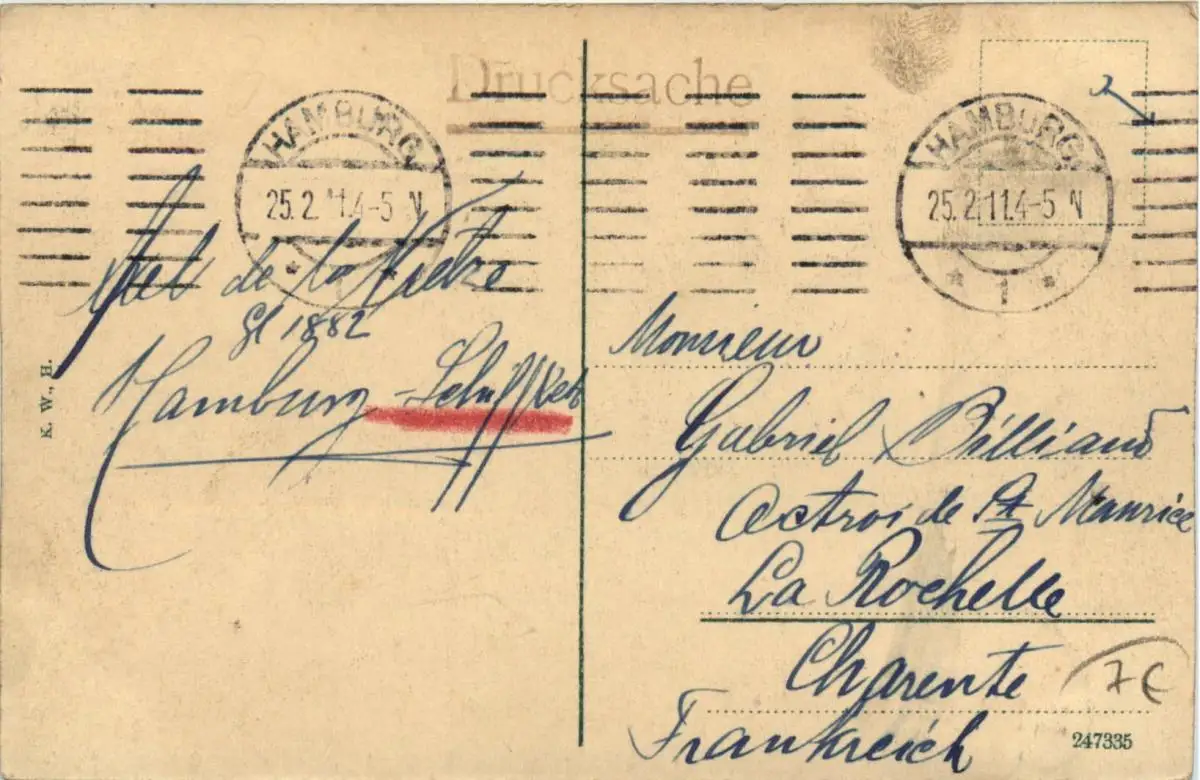 Drucksache
HAMBURG
25.2.11.4-5 N
HAMBURG
25.2.11.4-5 N
* 1 *
de la
1882
Hamburg
K. W., H.
Monsieur
Gabriel Billiaud
Octroi de St Maurice
La Rochelle
Charente
Frankreich
7€
247335